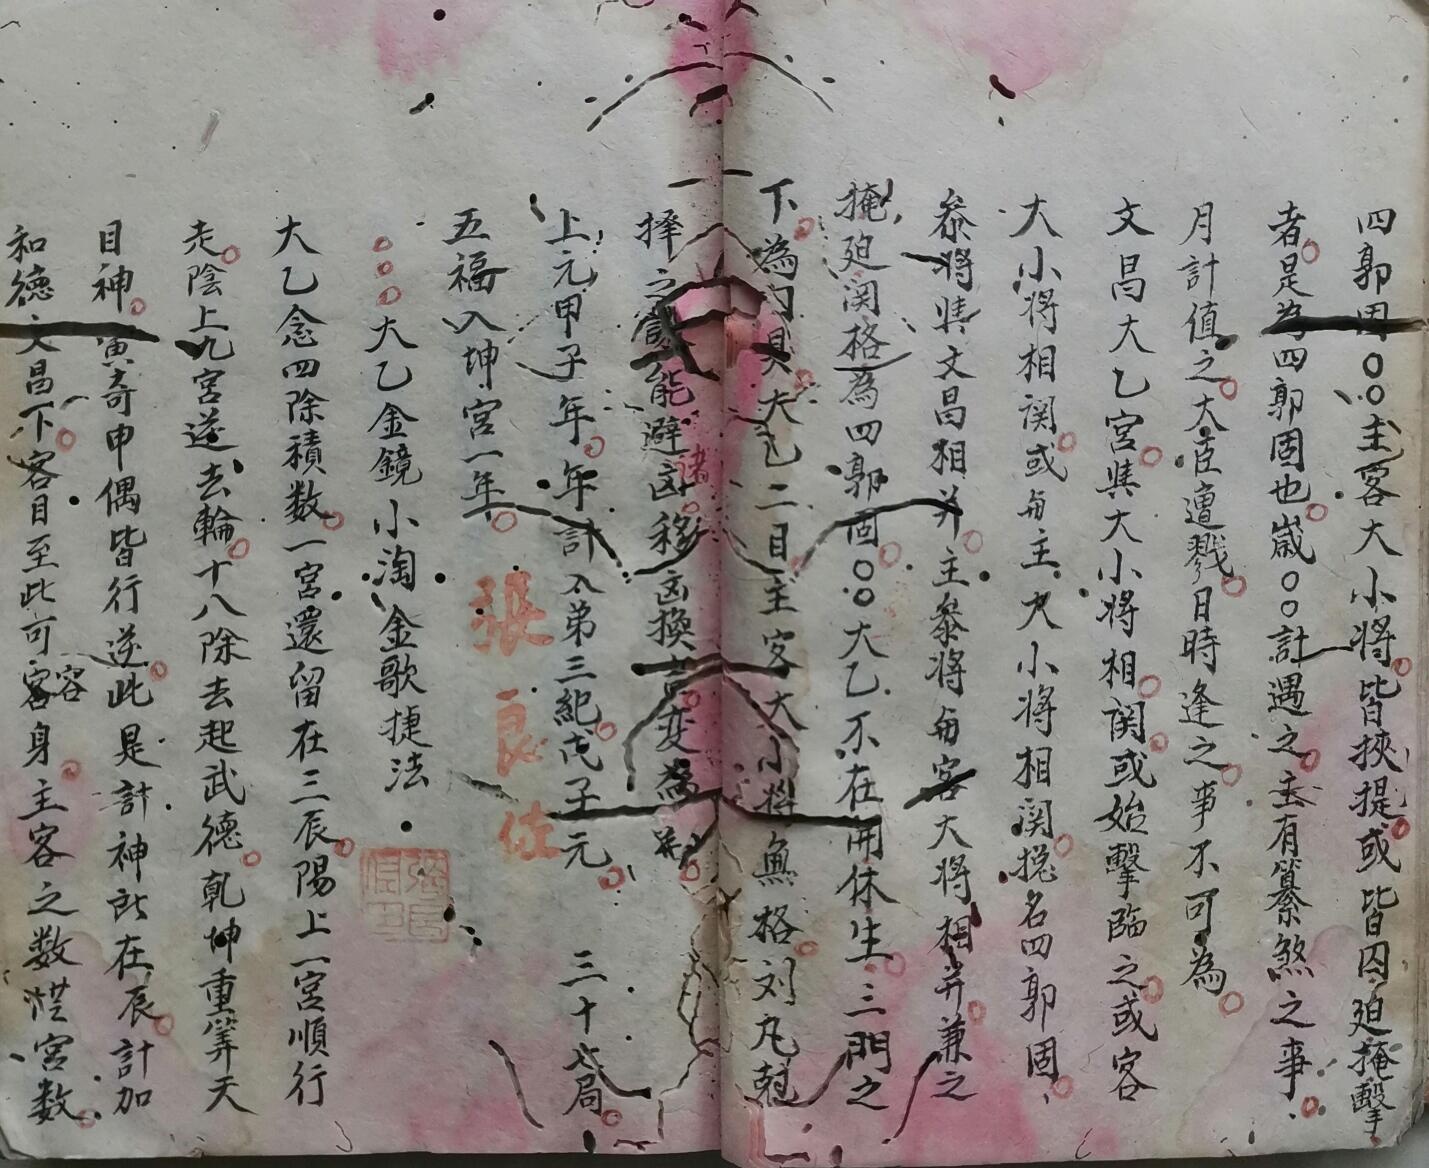 四郭固〇〇主客大小將皆挾提或皆囚廹掩擊
者是為四郭固也歲〇〇計遇之主有篡煞之事
月計值之大臣遭戮日時逢之事不可為
文昌大乙宮與大小將相関或始擊臨之或客
大小將相関或每主大小將相関揔名四郭固
叅將與文昌相并主叅將每客大將相并兼之
掩廹関格為四郭固〇〇大乙不在開休生三門之
下為具大乙二目主客大小將無格刘
擇之能避凶移凶換變為
上元甲子年年計入第三紀戊子元 三十六局
五福入坤宮一年
張良佐
大乙金鏡小淘金歌捷法
大乙念四除積數一宮還留在三辰陽上一宮順行
走陰上九宮逆去輪十八除去起武德乾坤重筭天
目神寅奇申偶皆行逆此是計神所在辰計加
和德文昌下客目至此可容身主客之數宮數